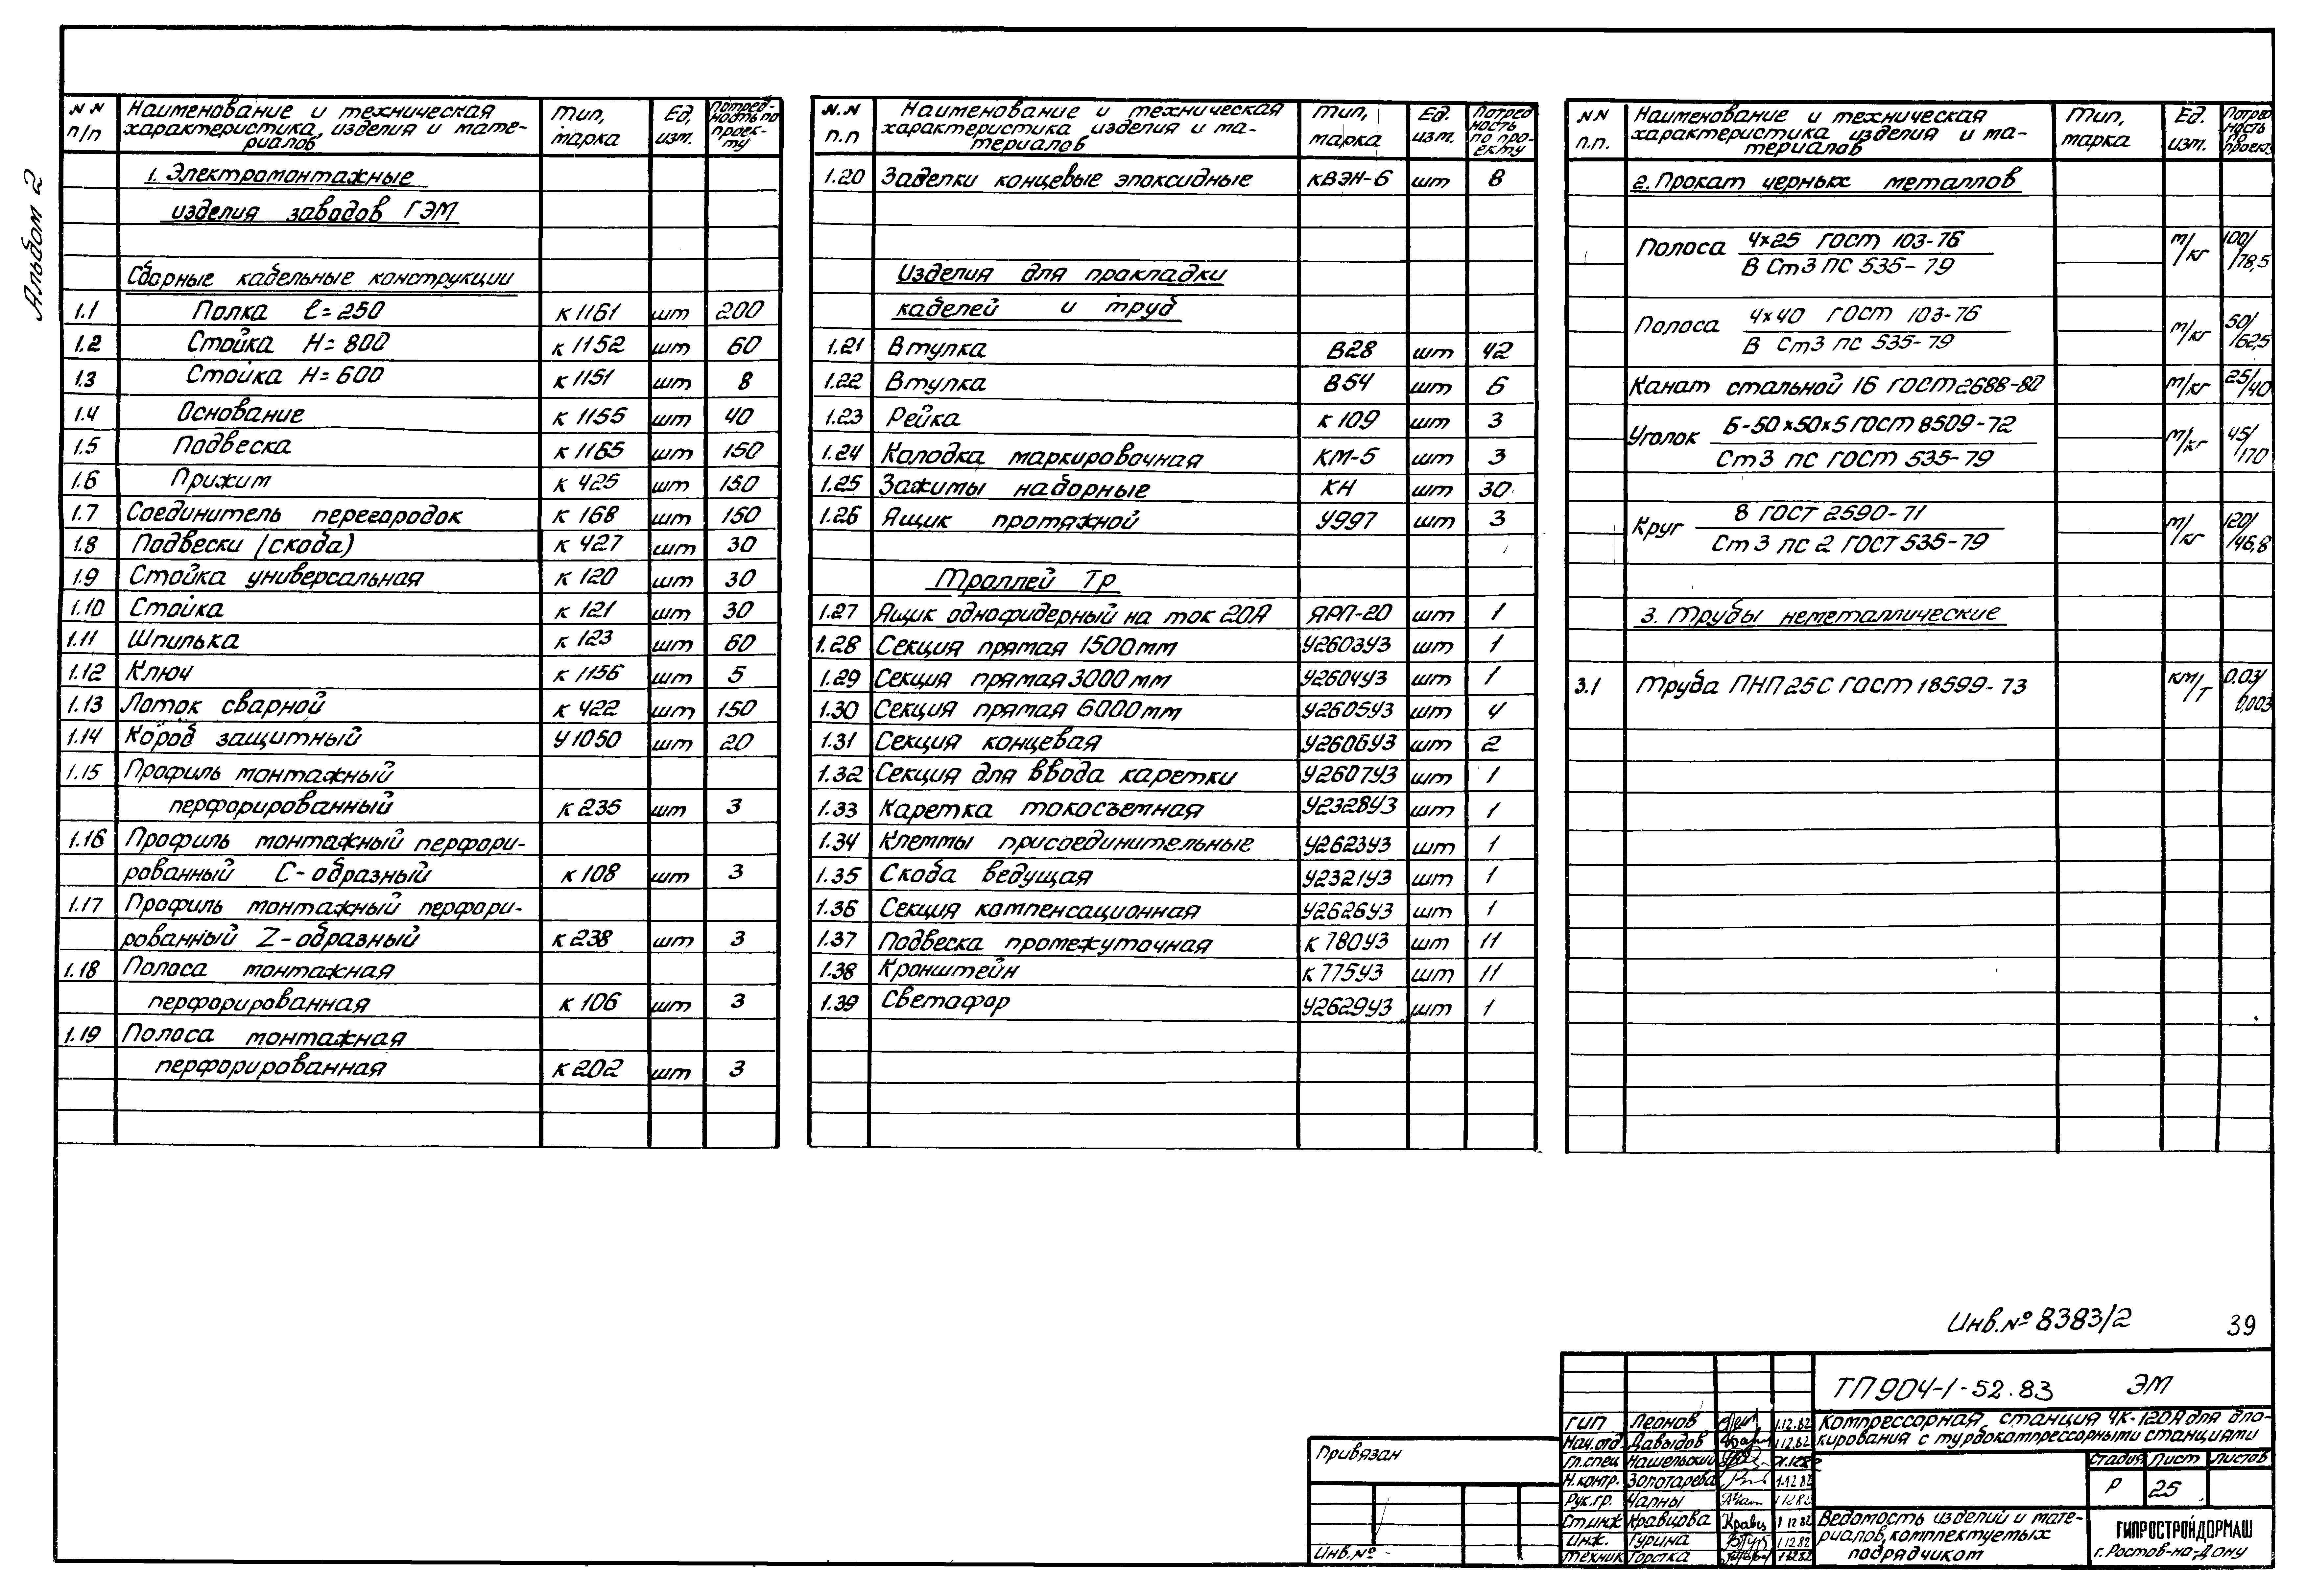 Альбом 2
NN п/п | Наименование и техническая характеристика, изделия и материалов | Тип, марка | Ед. изм. | Потребность по проекту
1. Электромонтажные
изделия заводов ГЭМ
Сборные кабельные конструкции
1.1 Полка ℓ=250 к1161 шт 200
1.2 Стойка H=800 к1152 шт 60
1.3 Стойка H=600 к1151 шт 8
1.4 Основание к1155 шт 40
1.5 Подвеска к1165 шт 150
1.6 Прижим к425 шт 150
1.7 Соединитель перегородок к168 шт 150
1.8 Подвески (скоба) к427 шт 30
1.9 Стойка универсальная к120 шт 30
1.10 Стойка к121 шт 30
1.11 Шпилька к123 шт 60
1.12 Ключ к1156 шт 5
1.13 Лоток сварной к422 шт 150
1.14 Короб защитный У1050 шт 20
1.15 Профиль монтажный
перфорированный к235 шт 3
1.16 Профиль монтажный перфори-
рованный С-образный к108 шт 3
1.17 Профиль монтажный перфори-
рованный Z-образный к238 шт 3
1.18 Полоса монтажная
перфорированная к106 шт 3
1.19 Полоса монтажная
перфорированная к202 шт 3
N.N п.п | Наименование и техническая характеристика изделия и материалов | Тип, марка | Ед. изм. | Потребность по проекту
1.20 Заделки концевые эпоксидные КВЭН-6 шт 8
Изделия для прокладки
кабелей и труб
1.21 Втулка В28 шт 42
1.22 Втулка В54 шт 6
1.23 Рейка к109 шт 3
1.24 Колодка маркировочная КМ-5 шт 3
1.25 Зажимы наборные КН шт 30
1.26 Ящик протяжной У997 шт 3
Троллей Тр
1.27 Ящик однофидерный на ток 20А ЯРП-20 шт 1
1.28 Секция прямая 1500мм У2603У3 шт 1
1.29 Секция прямая 3000мм У2604У3 шт 1
1.30 Секция прямая 6000мм У2605У3 шт 4
1.31 Секция концевая У2606У3 шт 2
1.32 Секция для ввода каретки У2607У3 шт 1
1.33 Каретка токосъемная У2328У3 шт 1
1.34 Клеммы присоединительные У2623У3 шт 1
1.35 Скоба ведущая У2321У3 шт 1
1.36 Секция компенсационная У2626У3 шт 1
1.37 Подвеска промежуточная к780У3 шт 11
1.38 Кронштейн к775У3 шт 11
1.39 Светафор У2629У3 шт 1
NN п.п. | Наименование и техническая характеристика изделия и материалов | Тип, марка | Ед. изм. | Потребность по проекту
2. Прокат черных металлов
Полоса 4×25 ГОСТ 103-76 / В Ст3 ПС 535-79 м/кг 100/78,5
Полоса 4×40 ГОСТ 103-76 / В Ст3 ПС 535-79 м/кг 50/62,5
Канат стальной 16 ГОСТ 2688-80 м/кг 25/40
Уголок Б-50×50×5 ГОСТ 8509-72 / Ст3 пс ГОСТ 535-79 м/кг 45/170
Круг 8 ГОСТ 2590-71 / Ст3 пс 2 ГОСТ 535-79 м/кг 120/46,8
3. Трубы неметаллические
3.1 Труба ПНП 25С ГОСТ 18599-73 км/т 0.03/0,003
Инв.№ 8383/2 39
ТП 904-1-52.83 ЭМ
Компрессорная станция 4К-120А для бло-
кирования с турбокомпрессорными станциями
ГИП Леонов 1.12.82
Нач.отд. Давыдов 1.12.82
Гл.спец Нашельский
Н.контр. Золотарева 1.12.82
Рук.гр. Чапны 1.12.82
Ст.инж Кравцова Кравц 1.12.82
Инж. Гурина 1.12.82
Техник Горотка 1.12.82
Стадия Лист Листов
Р 25
Ведомость изделий и мате-
риалов, комплектуемых
подрядчиком
ГИПРОСТРОЙДОРМАШ
г. Ростов-на-Дону
Привязан
Инв.№